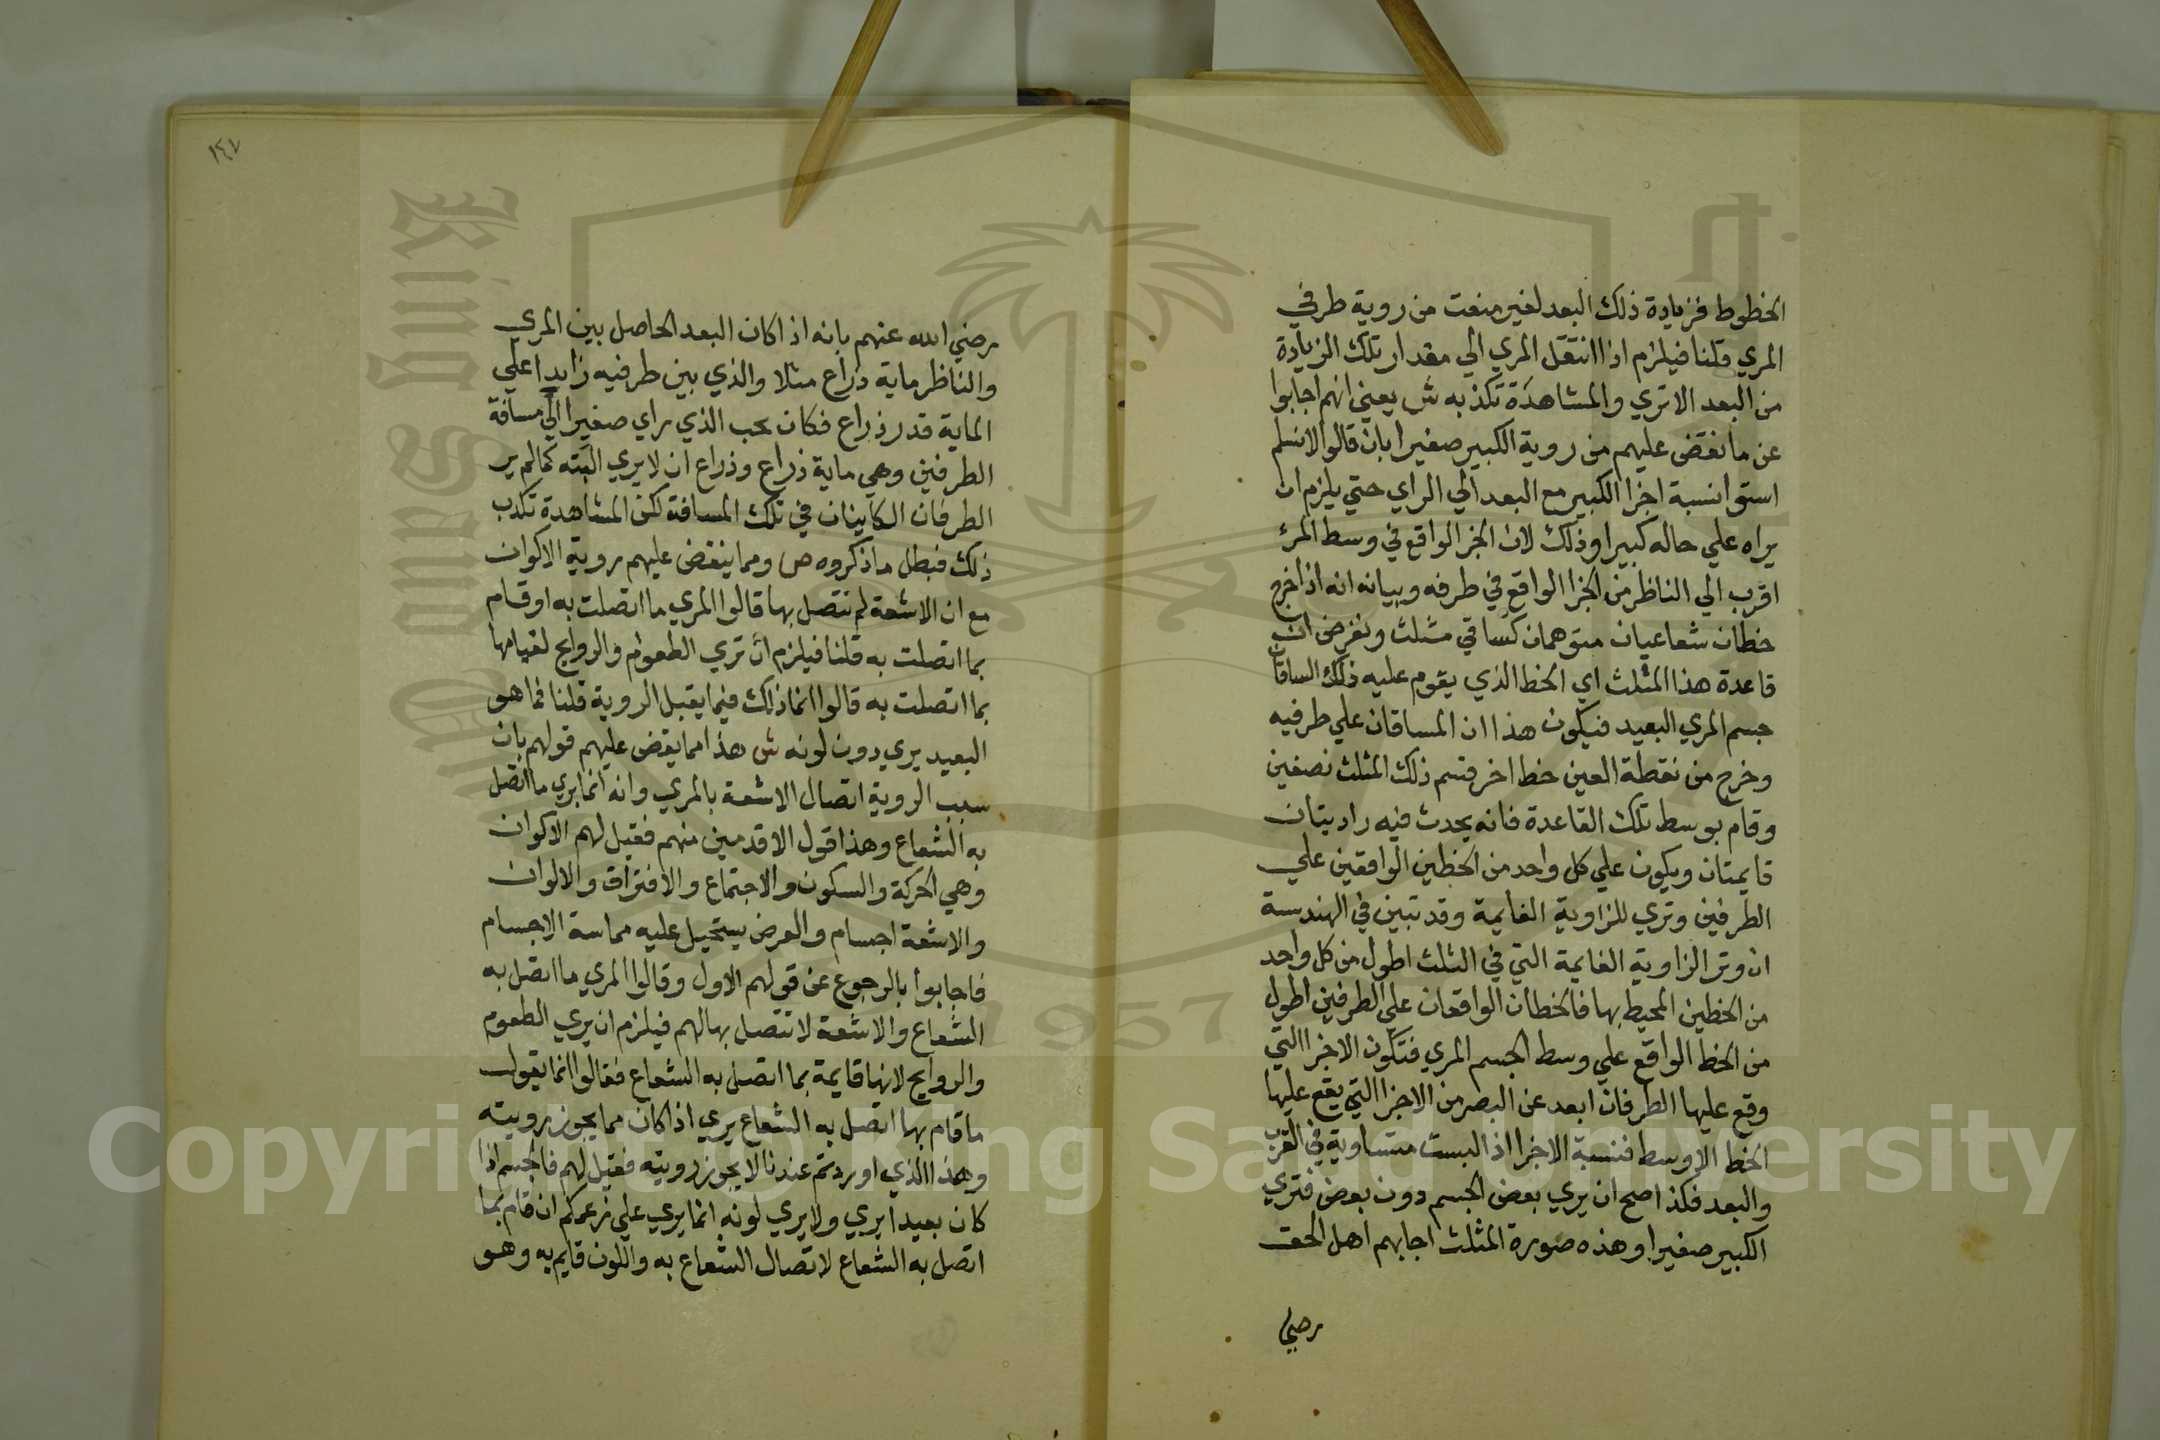 الخطوط فزيادة ذلك البعد لغير منعت من روية طرفي
المري قلنا فيلزم اذا انتقل المري الي مقدار تلك الزيادة
من البعد الا تري والمشاهدة تكذبه ش يعني انهم اجابوا
عن ما نقض عليهم من روية الكبير صغيرا بان قالوا لا نسلم
استوا نسبة اجزا الكبير مع البعد الي الراي حتي يلزم ان
يراه علي حاله كبيرا وذلك لان الجز الواقع في وسط المرء
اقرب الي الناظر من الجزا الواقع في طرفه وبيانه انه اذا خرج
خطان شعاعيان متوهمان كساقي مثلث ونفرض ان
قاعدة هذا المثلث اي الخط الذي يقوم عليه ذلك الساقان
جسم المري البعيد فيكون هذا ان المساقان علي طرفيه
وخرج من نقطة العين خط اخر قسم ذلك المثلث نصفين
وقام بوسط تلك القاعدة فانه يحدث فيه زاديتان
قايمتان ويكون علي كل واحد من الخطين الواقعين علي
الطرفين وتري للزاوية القايمة وقد تبين في الهندسة
ان وتر الزاوية القايمة التي في الثلث اطول من كل واحد
من الخطين المحيط بها فالخطان الواقعان علي الطرفين اطول
من الخط الواقع علي وسط الجسم المري فتكون الاجزا التي
وقع عليها الطرفان ابعد عن البصر من الاجزا التي يقع عليها
الخط الاوسط فنسبة الاجزا اذ البست متساوية في القرب
والبعد فكذا صح ان يري بعض الجسم دون بعض فتري
الكبير صغيرا وهذه صورة المثلث اجابهم اهل الحق
رضي
١٤٧
رضي الله عنهم بانه اذا كان البعد الحاصل بين المري
والناظر ماية ذراع مثلا والذي بين طرفيه زايدا علي
الماية قدر ذراع فكان يجب الذي راي صغيرا الي مسافة
الطرفين وهي ماية ذراع وذراع ان لا يري البته كما لم ير
الطرفان الكاينان في تلك المسافة لكن المشاهدة تكذب
ذلك فبطل ما ذكروه ص ومما ينقض عليهم روية الاكوان
مع ان الاشعة لم تتصل بها قالوا المري ما اتصلت به او قام
بما اتصلت به قلنا فيلزم ان تري الطعوم والروايح لقيامها
بما اتصلت به قالوا انما ذلك فيما يقبل الروية قلنا فما هو
البعيد يري دون لونه ش هذا مما يقض عليهم قولهم بان
سبب الروية اتصال الاشعة بالمري وانه انما يري ما اتصل
به الشعاع وهذا قول الاقدمين منهم فقيل لهم الاكوان
وهي الحركة والسكون والاجتماع والافتراق والالوان
والاشعة اجسام والعرض يستحيل عليه مماسة الاجسام
فاجابوا بالرجوع عن قولهم الاول وقالوا المري ما اتصل به
الشعاع والاشعة لا تتصل بها لهم فيلزم ان يري الطعوم
والروايح لانها قايمة بما اتصل به الشعاع فقالوا انما يقول
ما قام بها اتصل به الشعاع يري اذا كان مما يجوز رويته
وهذا الذي اوردتم عندنا لا يجوز رويته فقيل لهم فالجسم اذا
كان بعيدا يري ولا يري لونه انما يري علي زعمكم ان قام بما
اتصل به الشعاع لاتصال الشعاع به واللون قايم به وهو
King Saud University
1957
Copyright © King Saud University